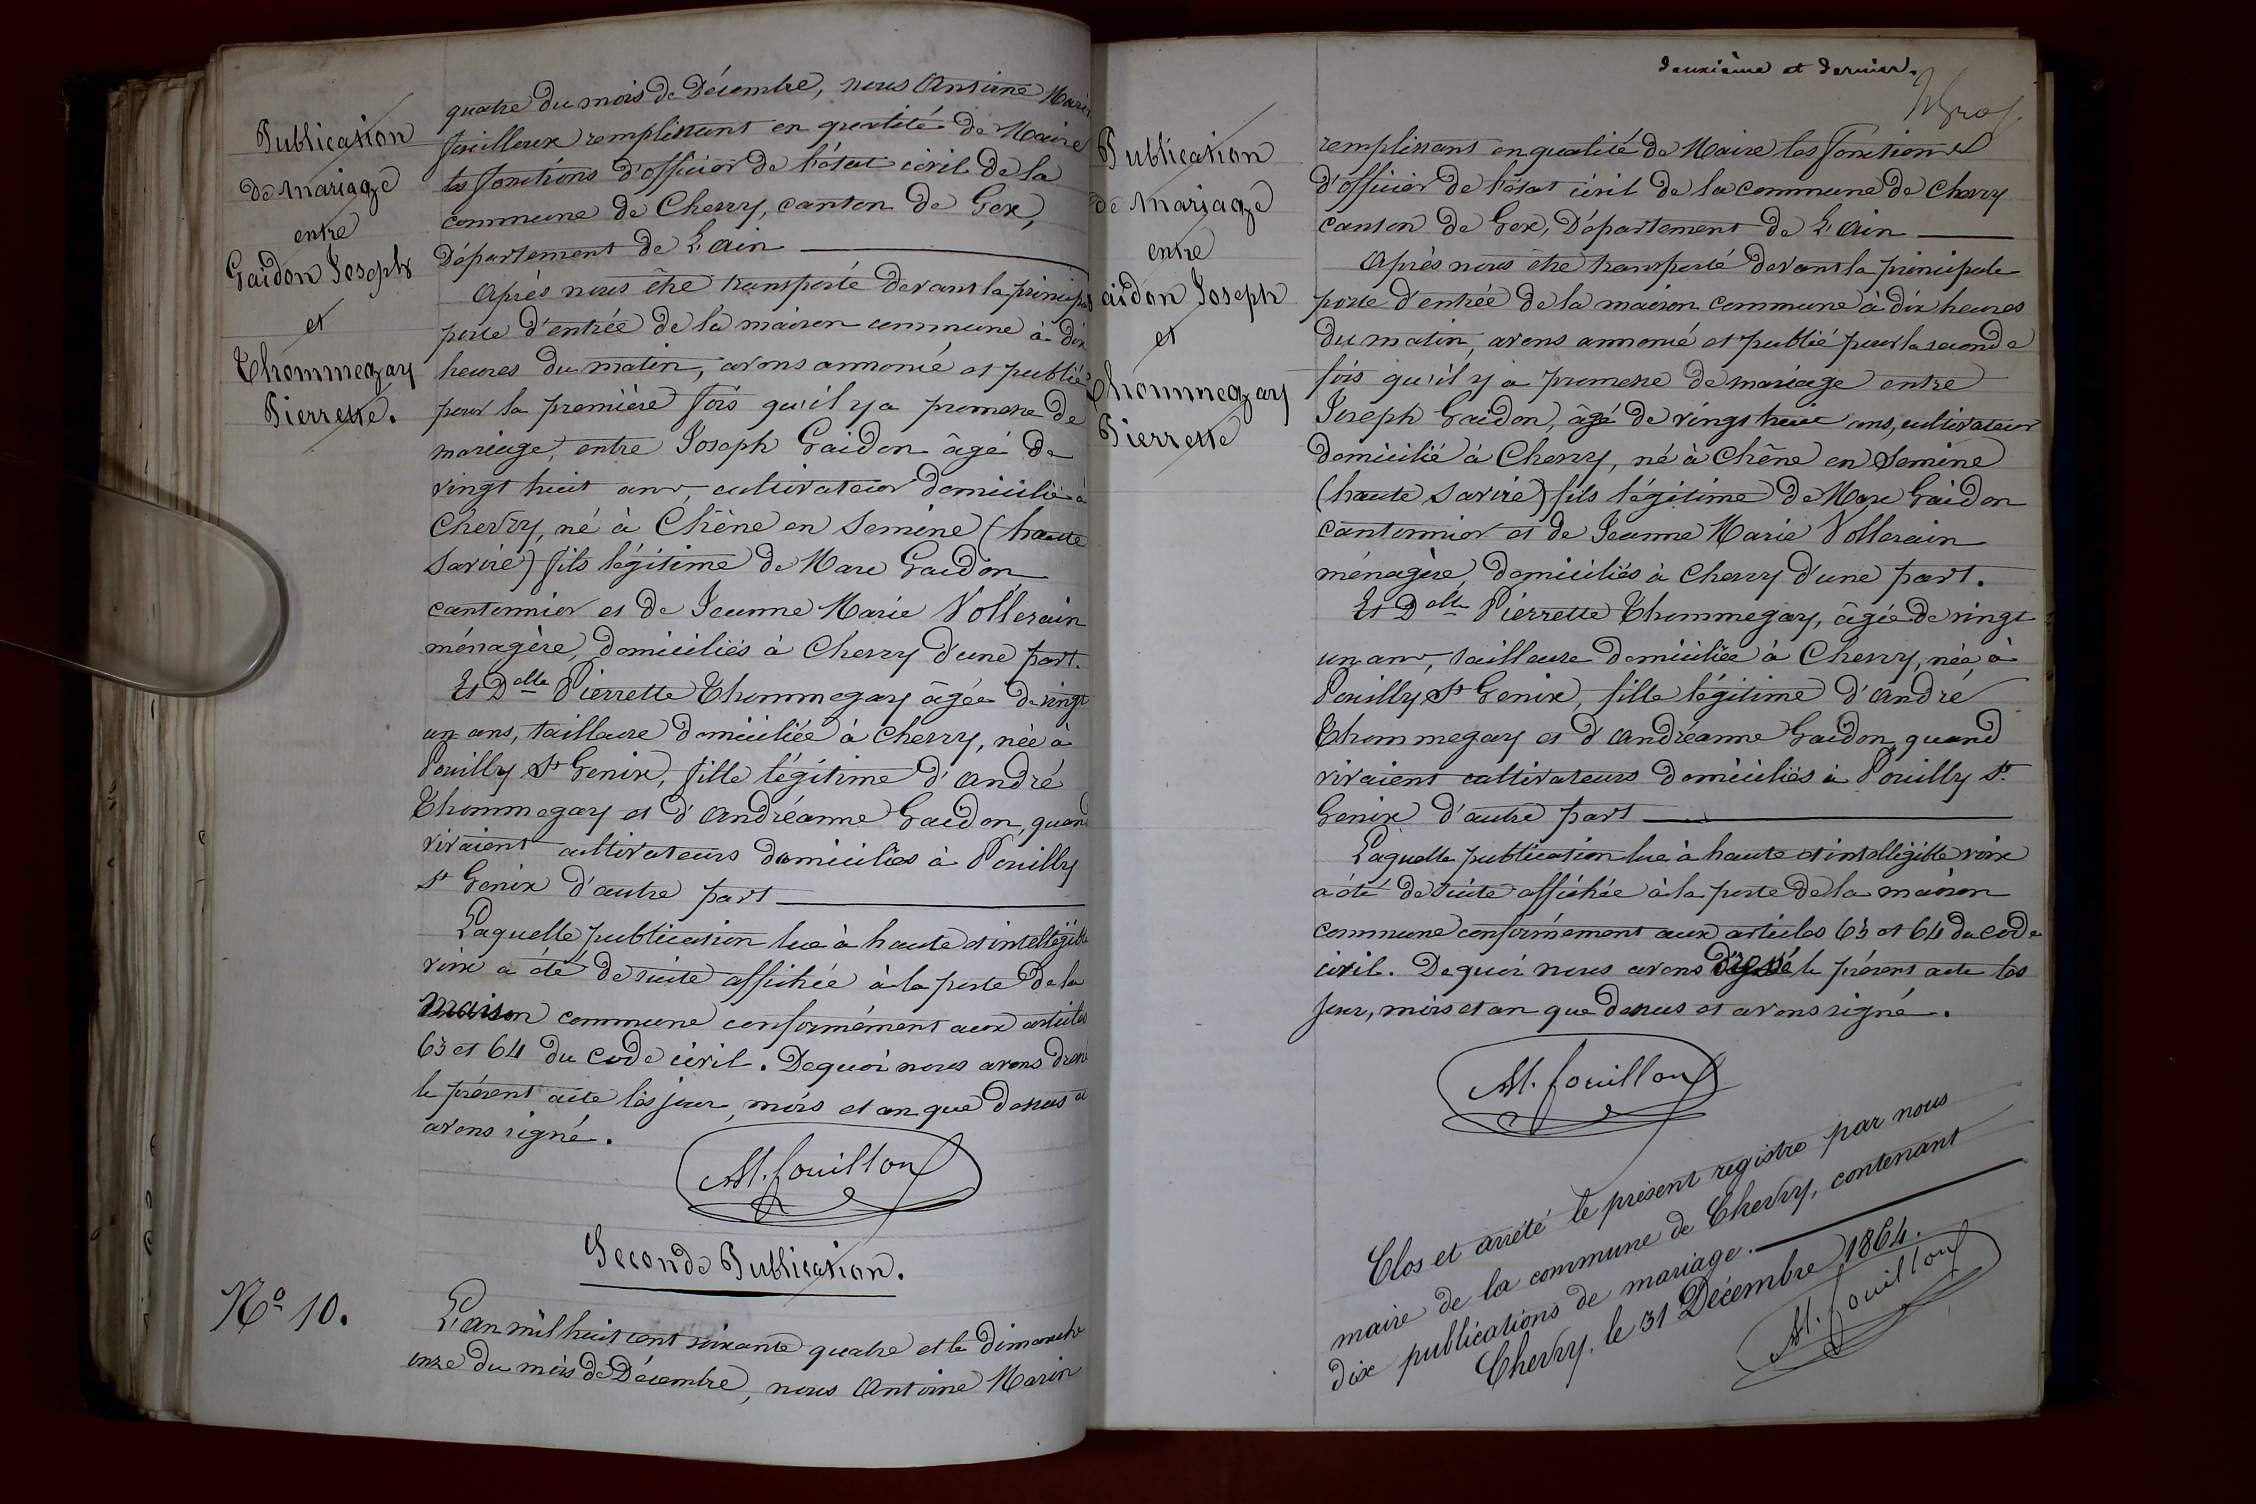 Publication
de mariage
entre
Gaidon Joseph
et
Thommegay
Pierrette.
quatre du mois de Décembre, nous Antoine Marin
fouilloux remplissant en qualité de Maire
les fonctions d'officier de l'état civil de la
commune de Chevry, canton de Gex,
Département de L'ain
Après nous être transporté devant la principale
porte d'entrée de la maison commune à dix
heures du matin, avons annoncé et publié
pour la première fois qu'il y a promesse de
mariage, entre Joseph Gaidon âgé de
vingt huit ans, cultivateur domicilié à
Chevry, né à Chêne en Semine (haute
Savoie) fils légitime de Marc Gaidon
cantonnier et de Jeanne Marie Vollerain
ménagère, domiciliés à Chevry d'une part.
Et Delle Pierrette Thommegay âgée de vingt
un ans, tailleuse domiciliée à Chevry, née à
Pouilly St Genix, fille légitime d'André
Thommegay et d'Andréanne Gaidon, quand
vivaient cultivateurs domiciliés à Pouilly
St Genix d'autre part
Laquelle publication lue à haute et intelligible
voix a été de suite affichée à la porte de la
maison commune conformément aux articles
63 et 64 du code civil. De quoi nous avons dressé
le présent acte les jour, mois et an que dessus et
avons signé.
AM. fouilloux
Seconde Publication.
No 10.
L'an mil huit cent soixante quatre et le dimanche
onze du mois de Décembre, nous Antoine Marin
deuxième et dernier.
Publication
de mariage
entre
aidon Joseph
et
Thommegay
Pierrette
remplissant en qualité de Maire les fonctions
d'officier de l'état civil de la commune de Chevry
canton de Gex, Département de L'Ain
Après nous être transporté devant la principale
porte d'entrée de la maison commune à dix heures
du matin, avons annoncé et publié pour la seconde
fois qu'il y a promesse de mariage entre
Joseph Gaidon, âgé de vingt huit ans, cultivateur
domicilié à Chevry, né à Chêne en Semine
(haute Savoie) fils légitime de Marc Gaidon
cantonnier et de Jeanne Marie Vollerain
ménagère, domiciliés à Chevry d'une part.
Et Delle Pierrette Thommegay, âgée de vingt
un ans, tailleuse domiciliée à Chevry, née à
Pouilly St Genix, fille légitime d'André
Thommegay et d'Andréanne Gaidon, quand
vivaient cultivateurs domiciliés à Pouilly St
Genix d'autre part
Laquelle publication lue à haute et intelligible voix
a été de suite affichée à la porte de la maison
commune conformément aux articles 63 et 64 du code
civil. De quoi nous avons dressé le présent acte les
jour, mois et an que dessus et avons signé.
AM. fouilloux
Clos et arrêté le présent registre par nous
maire de la commune de Chevry, contenant
dix publications de mariage.
Chevry, le 31 Décembre 1864.
AM. fouilloux